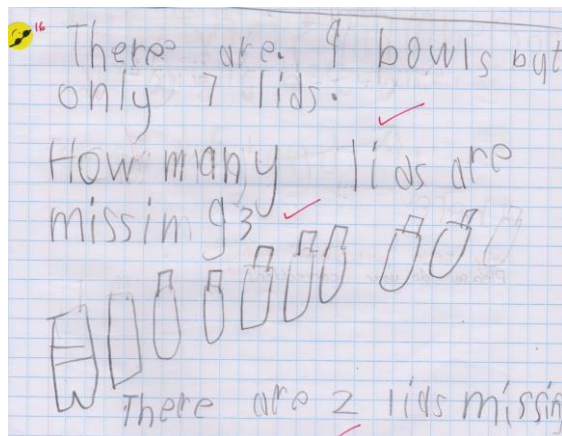 16
There are. 9 bowls but
only 7 lids.
How many lids are
missing?
There are 2 lids missing